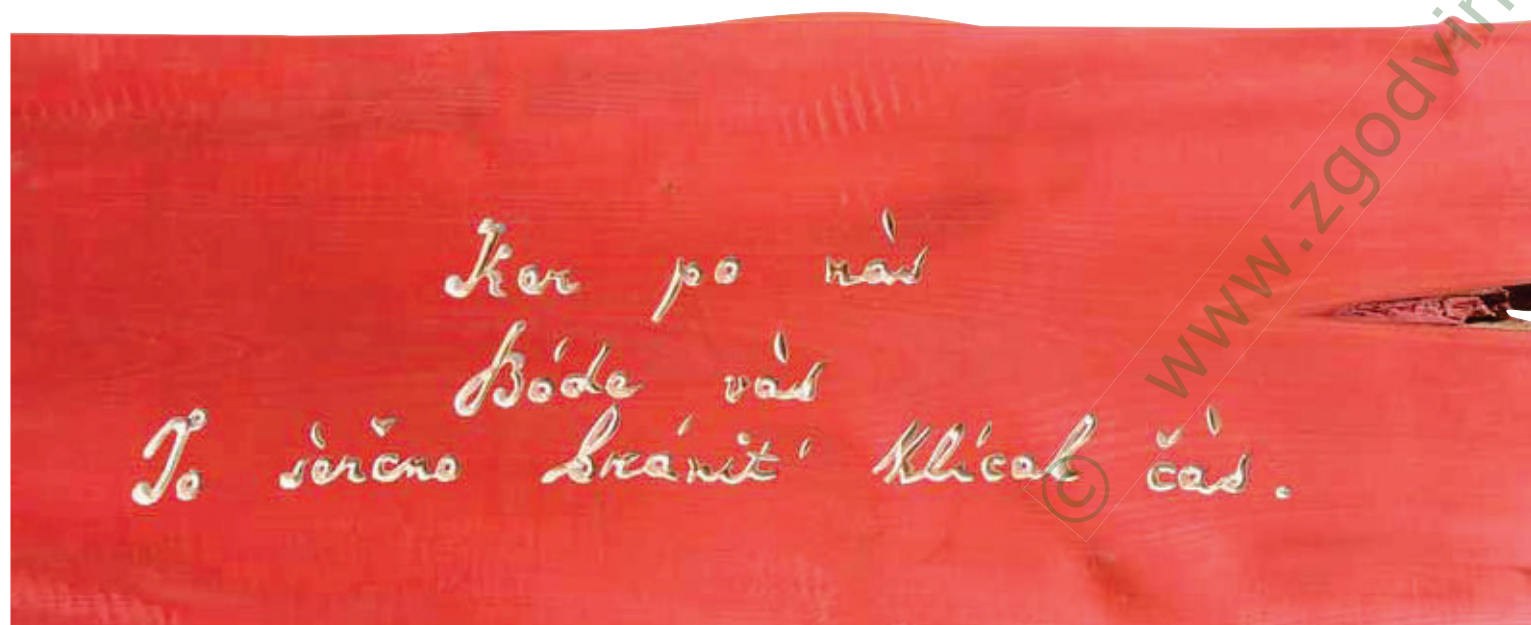 Kar po nàs
Bóde vàs
To sèrčno bránit' klícal čàs.
© www.zgodvin